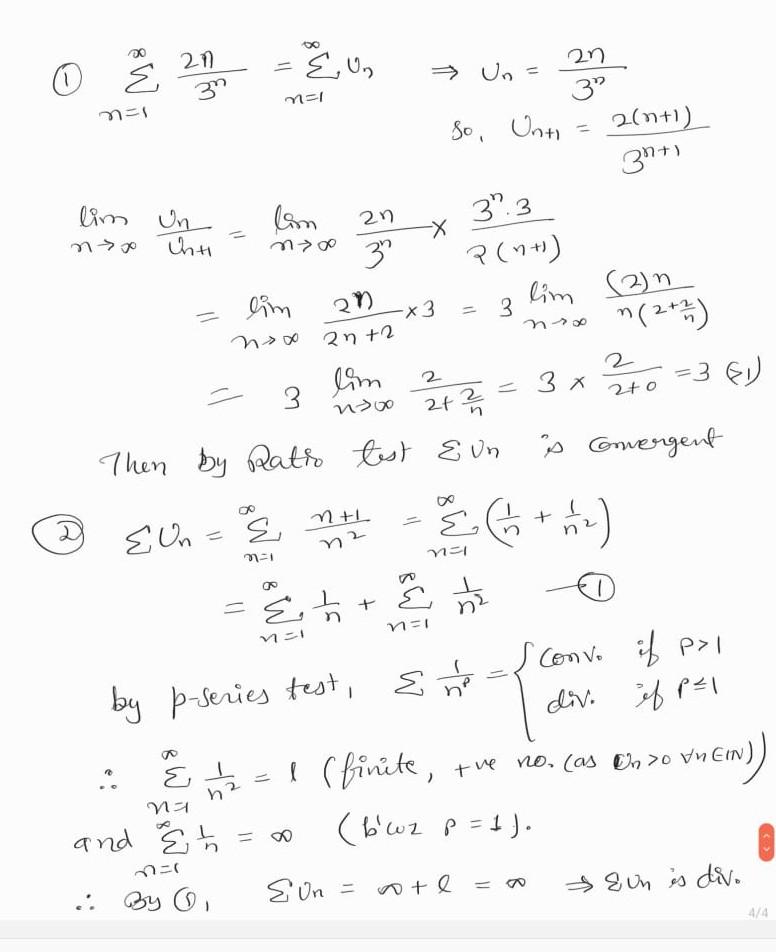 ① ∞∑n=1 2n/3^n = ∞∑n=1 Un ⇒ Un = 2n/3^n
So, Un+1 = 2(n+1)/3^(n+1)
lim n→∞ Un/Un+1 = lim n→∞ 2n/3^n × 3^n.3/2(n+1)
= lim n→∞ 2n/2n+2 ×3 = 3 lim n→∞ (2)n/n(2+2/n)
= 3 lim n→∞ 2/2+2/n = 3 × 2/2+0 = 3 (>1)
Then by Ratio test ΣUn is Convergent
② ΣUn = ∞∑n=1 n+1/n² = ∞∑n=1 (1/n + 1/n²)
= ∞∑n=1 1/n + ∞∑n=1 1/n² —①
by p-series test, Σ 1/n^p = { Conv. if P>1
div. if P≤1
∴ ∞∑n=1 1/n² = l (finite, +ve no. (as Un>0 ∀n∈IN))
and ∞∑n=1 1/n = ∞ (b'coz p = 1).
∴ By ①, ΣUn = ∞+l = ∞ ⇒ ΣUn is div.
4/4